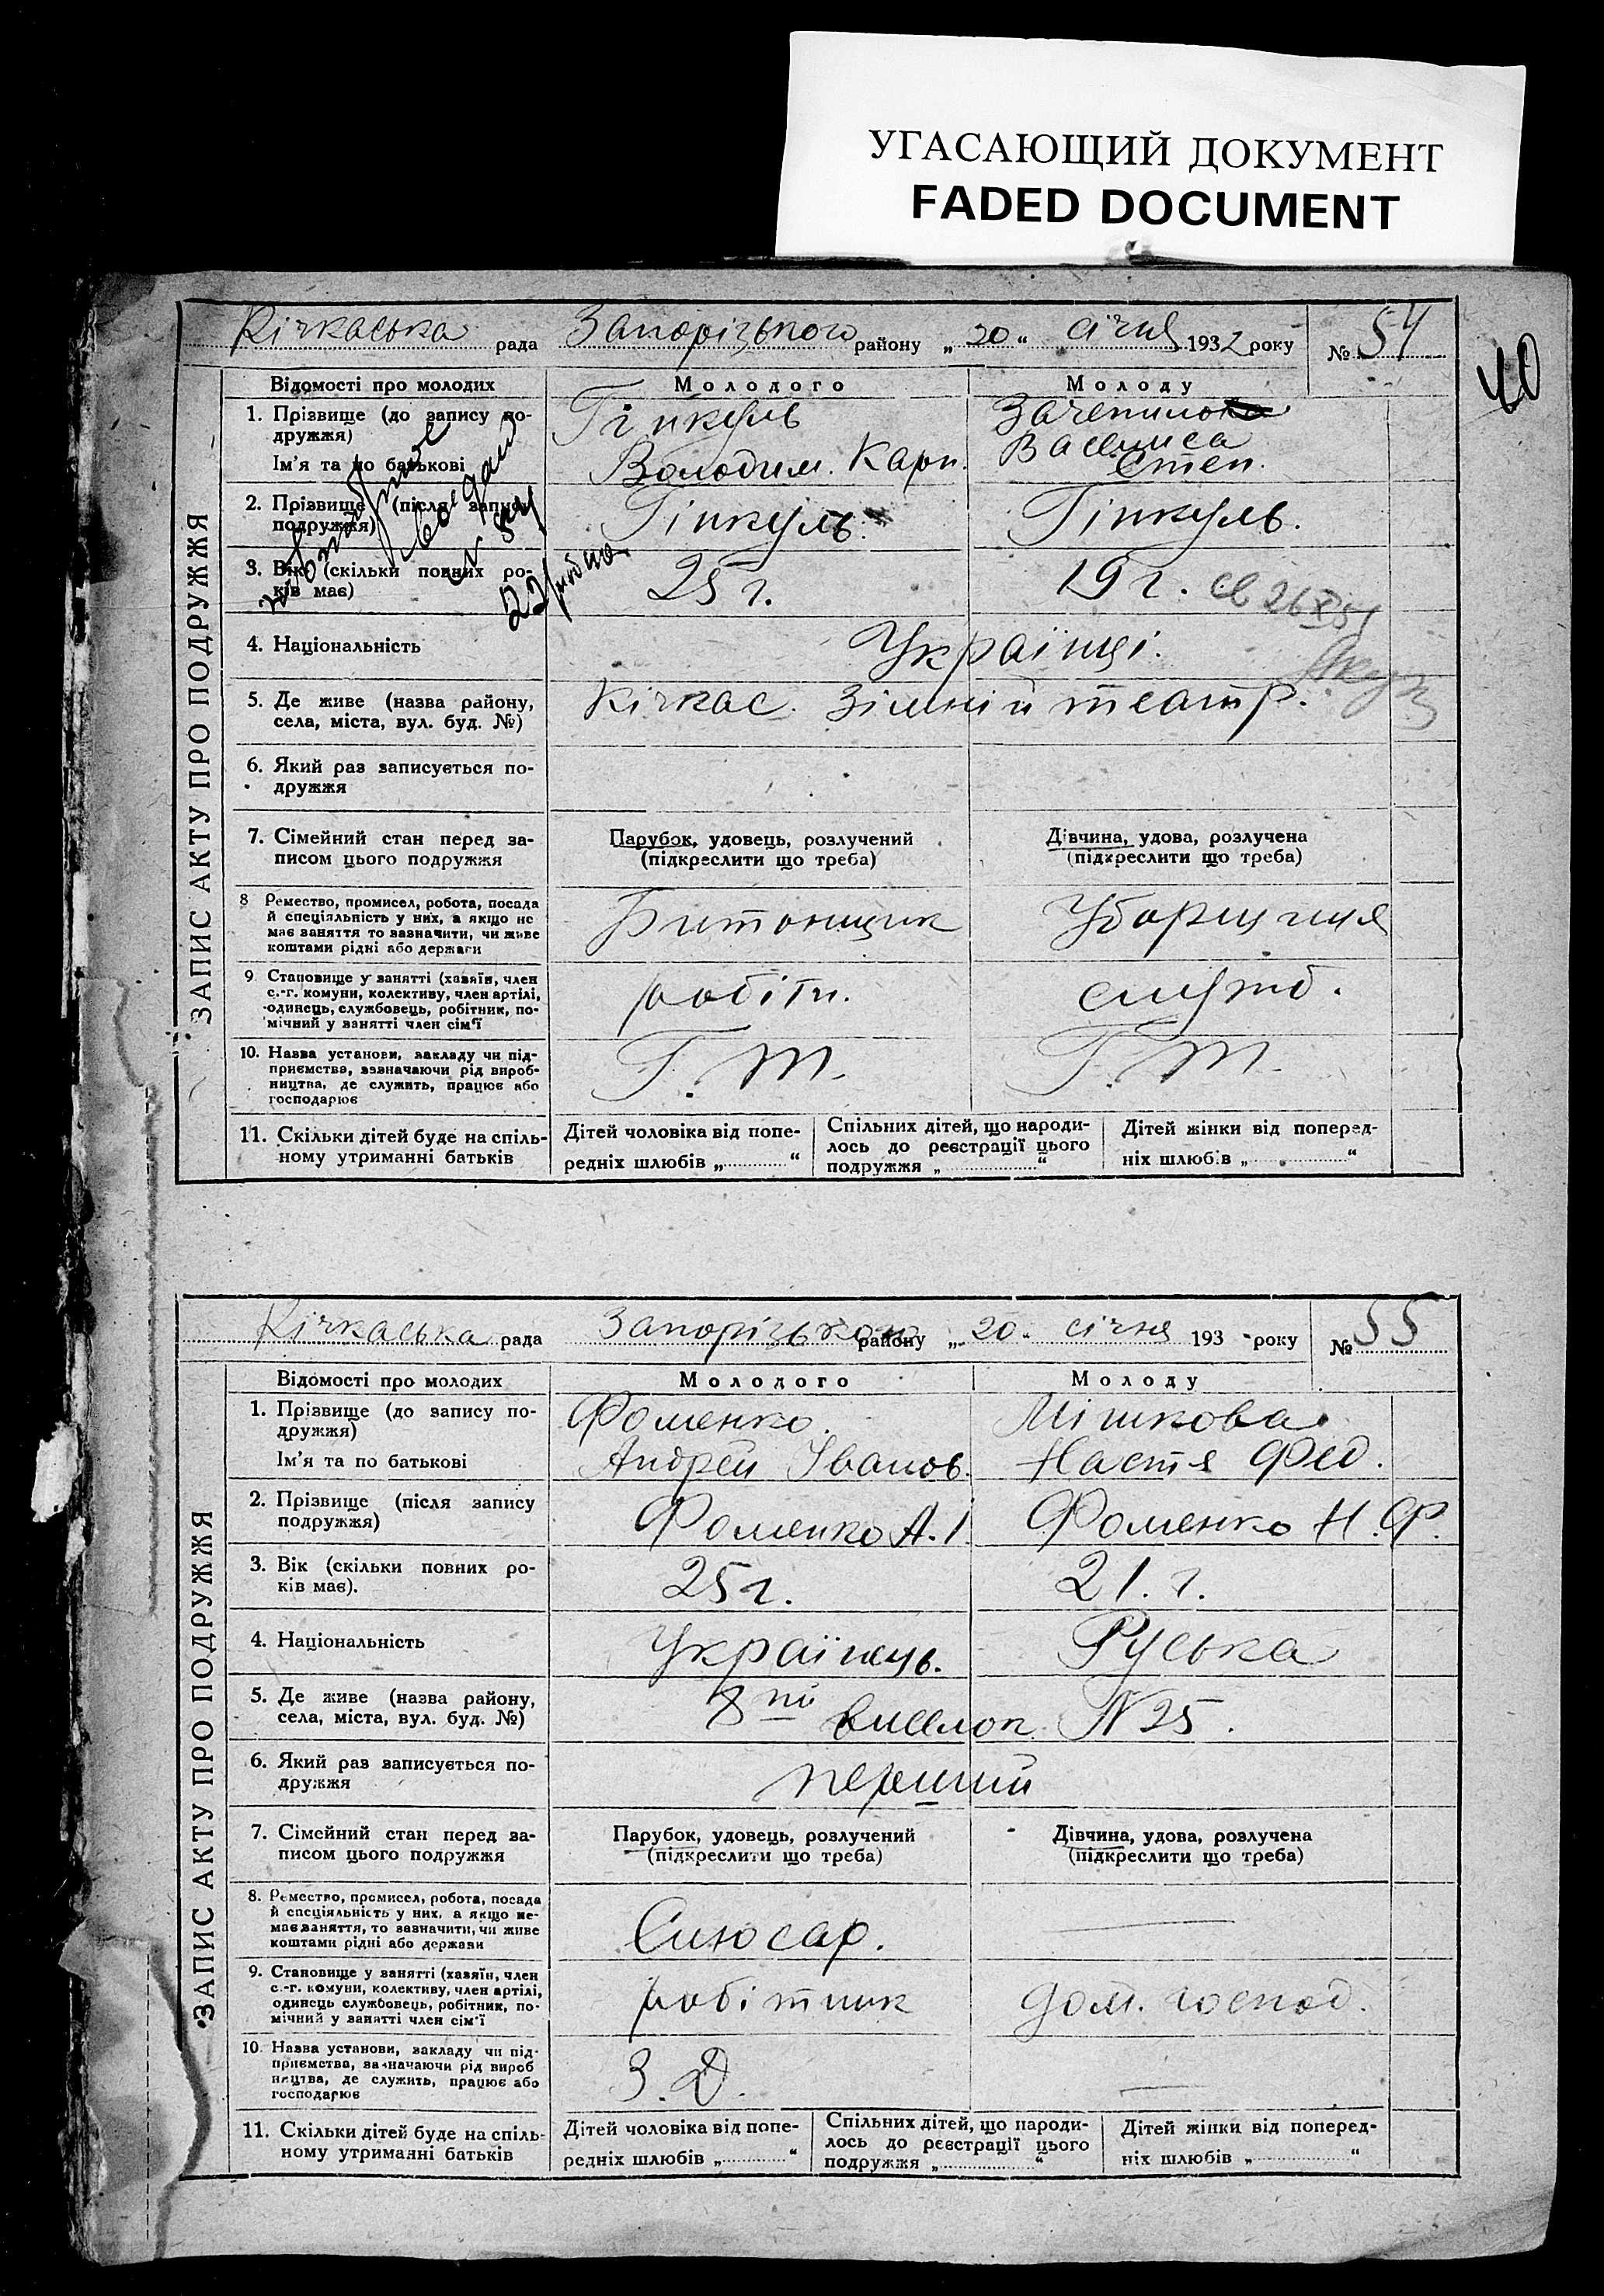 УГАСАЮЩИЙ ДОКУМЕНТ
FADED DOCUMENT
40
ЗАПИС АКТУ ПРО ПОДРУЖЖЯ
Кічкаська рада Запорізького району „20“ січня 1932 року № 54
Відомості про молодих Молодого Молоду
1. Прізвище (до запису по-
дружжя)
Гіпкуль
Ім'я та по батькові
Володим. Карп.
Василиса
Степ.
2. Прізвище (після запису
подружжя)
Гіпкуль
Гіпкуль.
3. Вік (скільки повних ро-
ків має)
25 г.
19 г.
4. Національність
Українці.
5. Де живе (назва району,
села, міста, вул. буд. №)
Кічкас. Зімній театр.
6. Який раз записується по-
дружжя
7. Сімейний стан перед за-
писом цього подружжя
Парубок, удовець, розлучений
(підкреслити що треба)
Дівчина, удова, розлучена
(підкреслити що треба)
8 Ремество, промисел, робота, посада
й спеціяльність у них, а якщо не
має заняття то зазначити, чи живе
коштами рідні або держави
Битонщик
Уборщиця
9. Становище у занятті (хазяїн, член
с.-г. комуни, колективу, член артілі,
одинець, службовець, робітник, по-
мічний у занятті член сім'ї
робітн.
служб.
10. Назва установи, закладу чи під-
приємства, зазначаючи рід вироб-
ництва, де служить, працює або
господарює
Г. Т.
Г. Т.
11. Скільки дітей буде на спіль-
ному утриманні батьків
Дітей чоловіка від попе-
редніх шлюбів „ “
Спільних дітей, що народи-
лось до реєстрації цього
подружжя „ “
Дітей жінки від поперед-
ніх шлюбів „ “
ЗАПИС АКТУ ПРО ПОДРУЖЖЯ
Кічкаська рада Запорізького району „20“ січня 193 року № 55
Відомості про молодих Молодого Молоду
1. Прізвище (до запису по-
дружжя)
Фоменко
Мішкова
Ім'я та по батькові
Андрей Іванов.
Настя Фед.
2. Прізвище (після запису
подружжя)
Фоменко А. І.
Фоменко Н. Ф.
3. Вік (скільки повних ро-
ків має).
25 г.
21. г.
4. Національність
Українець.
Руська
5. Де живе (назва району,
села, міста, вул. буд. №)
8ий виселок N 25.
6. Який раз записується по-
дружжя
перший
7. Сімейний стан перед за-
писом цього подружжя
Парубок, удовець, розлучений
(підкреслити що треба)
Дівчина, удова, розлучена
(підкреслити що треба)
8. Ремество, промисел, робота, посада
й спеціяльність у них, а якщо не-
має заняття, то зазначити, чи живе
коштами рідні або держави
Слюсар.
9. Становище у занятті (хазяїн, член
с.-г. комуни, колективу, член артілі,
одинець службовець, робітник, по-
мічний у занятті член сім'ї
робітник
дом. господ.
10. Назва установи, закладу чи під-
приємства, зазначаючи рід вироб
ництва, де служить, працює або
господарює
З. Д.
11. Скільки дітей буде на спіль-
ному утриманні батьків
Дітей чоловіка від попе-
редніх шлюбів „ “
Спільних дітей, що народи-
лось до реєстрації цього
подружжя „ “
Дітей жінки від поперед-
ніх шлюбів „ “